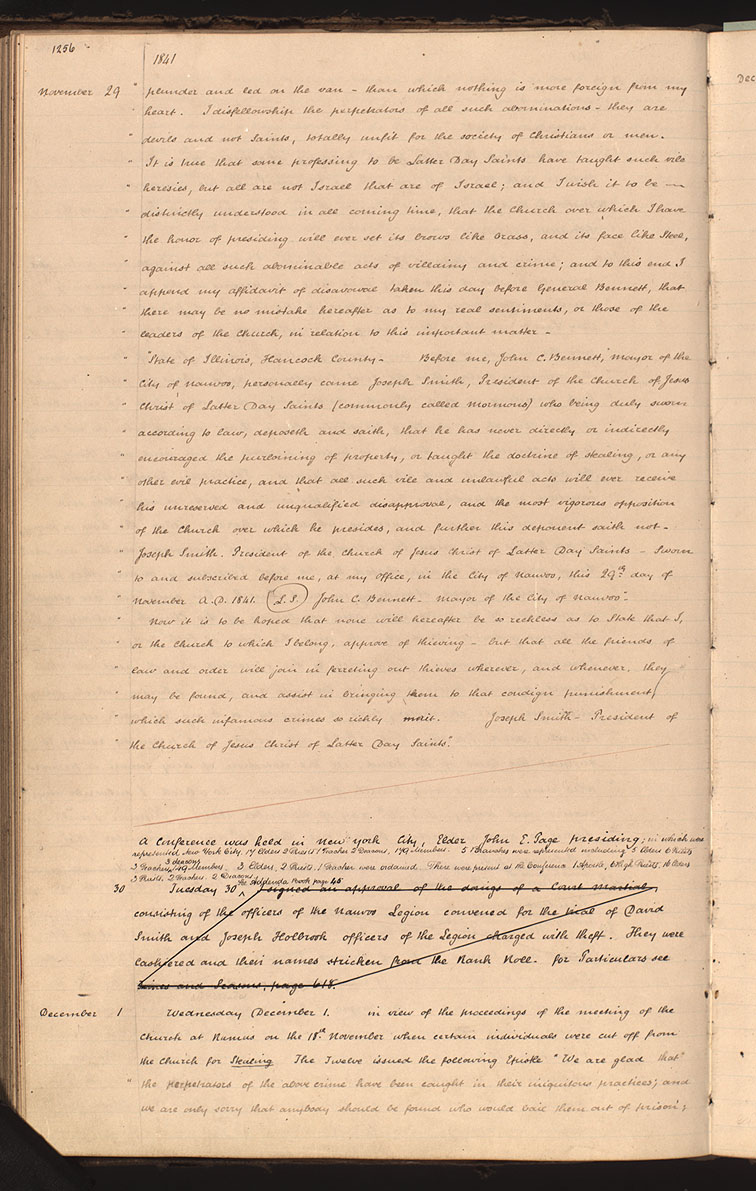 1256
1841
November 29 " plunder and led on the van – than which nothing is more foreign from my
" heart. I disfellowship the perpetrators of all such abominations – they are
" devils and not Saints, totally unfit for the society of Christians or men.
" It is true that some professing to be Latter Day Saints have taught such vile
" heresies, but all are not Israel that are of Israel; and I wish it to be —
" distinctly understood in all coming time, that the Church over which I have
" the honor of presiding will ever set its brows like brass, and its face like steel,
" against all such abominable acts of villainy and crime; and to this end I
" append my affidavit of disavowal taken this day before General Bennett, that
" there may be no mistake hereafter as to my real sentiments, or those of the
" leaders of the Church, in relation to this important matter –
" "State of Illinois, Hancock County– Before me, John C. Bennett, Mayor of the
" City of Nauvoo, personally came Joseph Smith, President of the Church of Jesus
" Christ of Latter Day Saints (commonly called Mormons) who being duly sworn
" according to law, deposeth and saith, that he has never directly or indirectly
" encouraged the purloining of property, or taught the doctrine of stealing, or any
" other evil practice, and that all such vile and unlawful acts will ever receive
" his unreserved and unqualified disapproval, and the most vigorous opposition
" of the Church over which he presides, and further this deponent saith not–
" Joseph Smith. President of the Church of Jesus Christ of Latter Day Saints – Sworn
" to and subscribed before me, at my office, in the City of Nauvoo, this 29th day of
" November A.D. 1841. L.S. John C. Bennett– Mayor of the City of Nauvoo"–
" Now it is to be hoped that none will hereafter be so reckless as to State that I,
" or the Church to which I belong, approve of thieving – but that all the friends of
" law and order will join in ferreting out thieves wherever, and whenever, they
" may be found, and assist in bringing them to that condign punishment,
" which such infamous crimes so richly merit. Joseph Smith– President of
" the Church of Jesus Christ of Latter Day Saints".
A Conference was held in New York City, Elder John E. Page presiding; in which was
represented New York City. 17 Elders 2 Priests 1 Teacher 2 Deacons, 179 Members. 5 Branches were represented including 5 Elders 6 Priests
3 Teachers 3 deacons 149 Members. 3 Elders, 2 Priests, 1 Teacher were ordained. There were present at the Conference 1 Apostle, 6 High Priests, 16 Elders
3 Priests, 2 Teachers. 2 Deacons
see Addenda Book page 45
30 Tuesday 30 I signed an approval of the doings of a Court Martial,
consisting of the officers of the Nauvoo Legion convened for the trial of David
Smith and Joseph Holbrook officers of the Legion charged with theft. They were
cashiered and their names stricken from the Rank Roll. for Particulars see
Times and Seasons, page 618.
December 1 Wednesday December 1. in view of the proceedings of the meeting of the
Church at Ramus on the 18th November when certain individuals were cut off from
the Church for Stealing The Twelve issued the following Epistle "We are glad that"
" the perpetrators of the above crime have been caught in their iniquitous practices; and
we are only sorry that anybody should be found who would bail them out of prison;
Dec